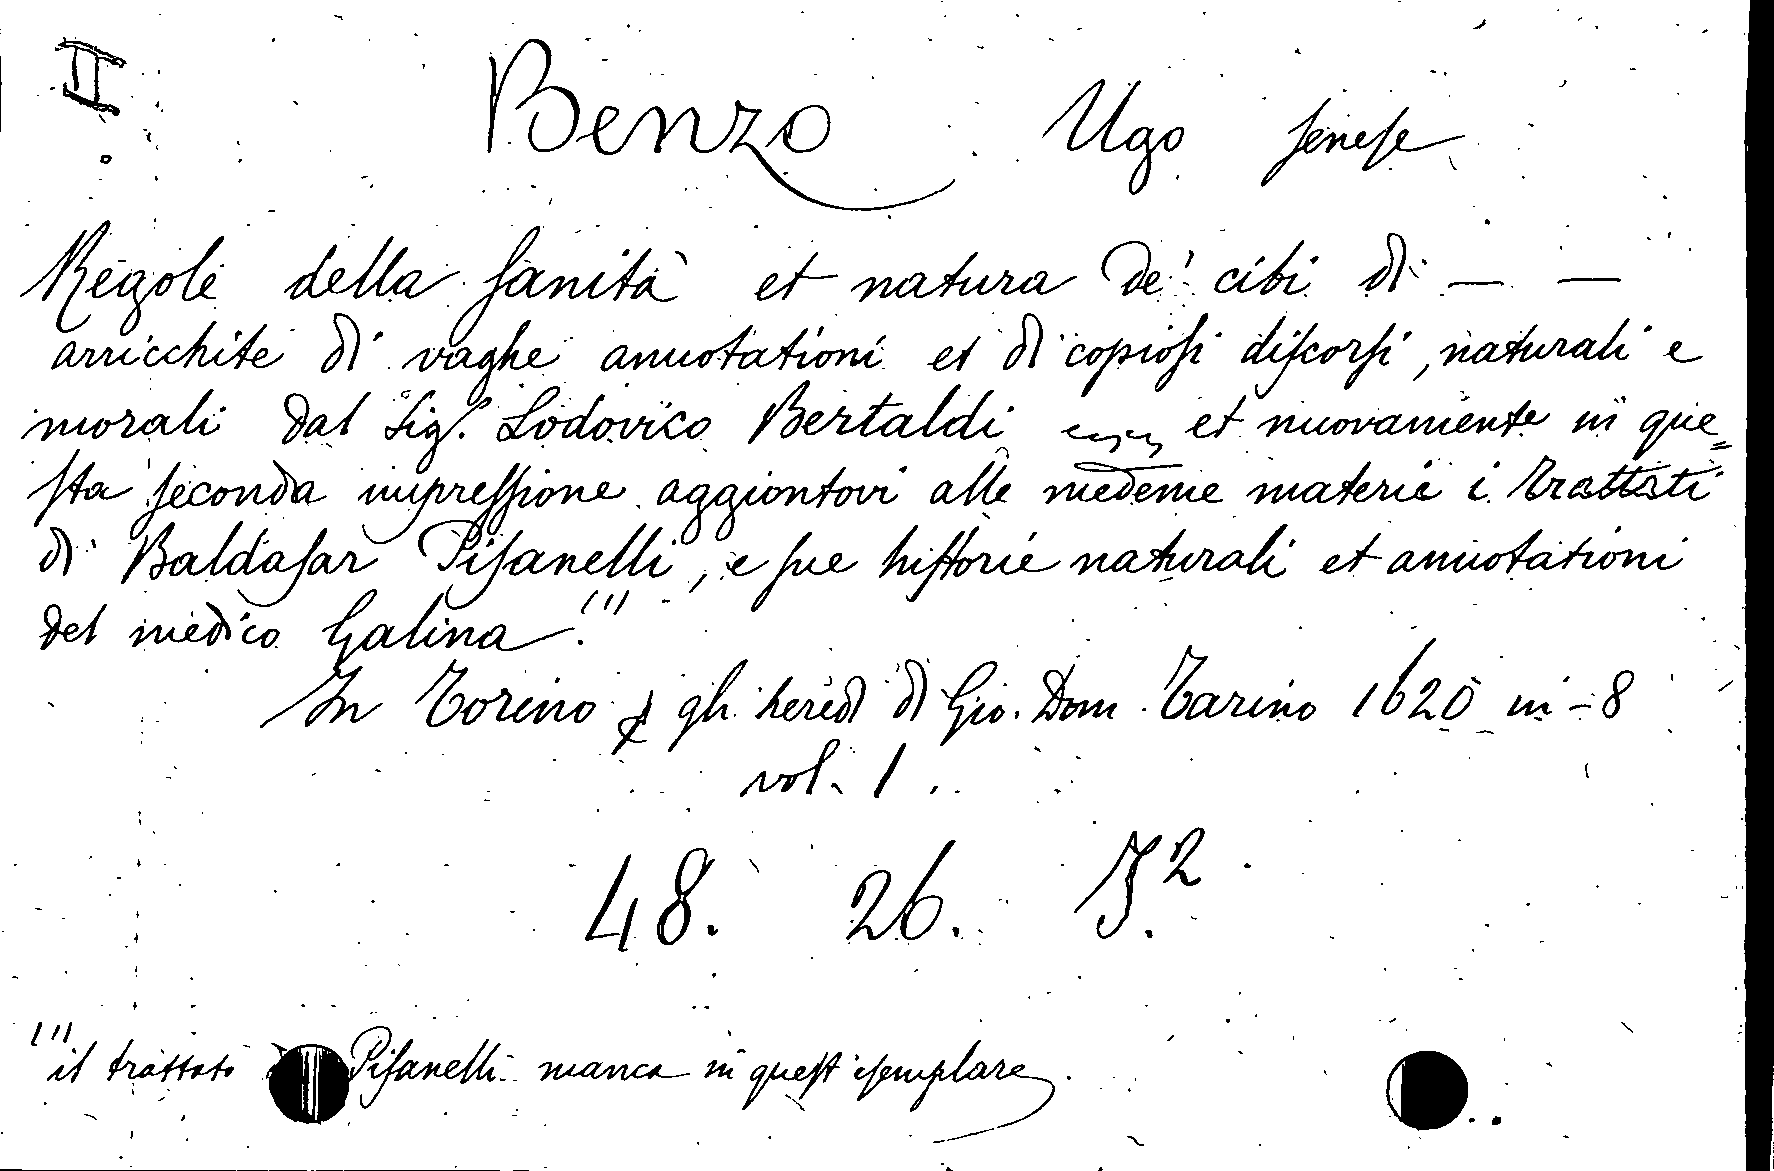 II
Benzo Ugo senese
Regole della sanità et natura de' cibi di — —
arricchite di vaghe annotationi et di copiosi discorsi, naturali e
morali dal Sig.r Lodovico Bertaldi et nuovamente in que=
sta seconda impressione aggiontovi alle medeme materie i trattati
di Baldasar Pisanelli, e sue historie naturali et annotationi
del medico Galina.(1)
In Torino p gli heredi di Gio. Dom. Tarino 1620 in-8
vol. 1.
48. 26. J.2
(1) il trattato Pisanelli manca in quest'esemplare.